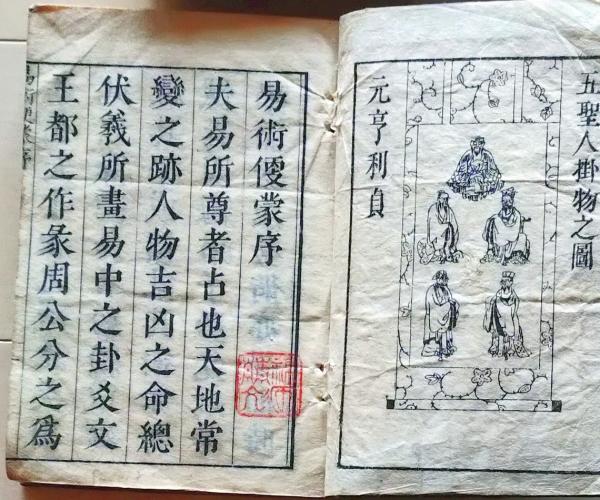 五聖人掛物之圖
元亨利貞
易術便蒙序
夫易所尊者占也天地常
變之跡人物吉凶之命總
伏羲所畫易中之卦爻文
王都之作彖周公分之爲